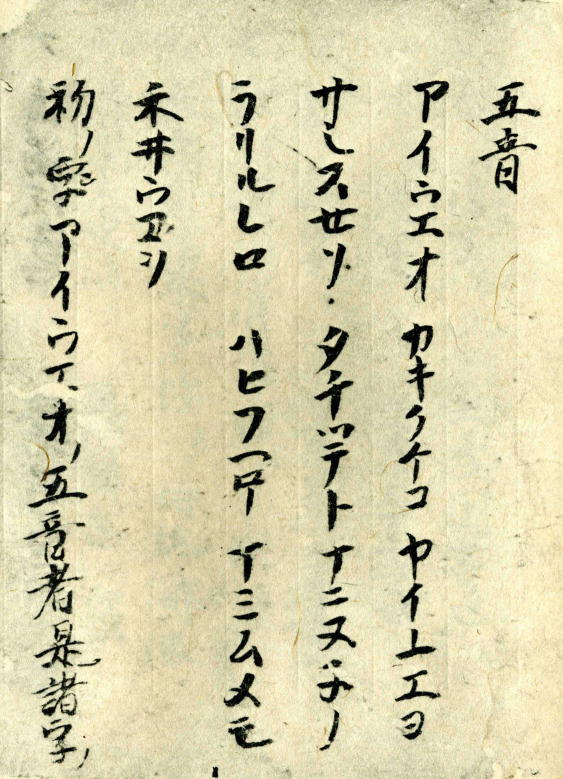 五音
アイウエオ カキクケコ ヤイユエヨ
サシスセソ・タチツテトナニヌネノ
ラリルレロ ハヒフヘホ マミムメモ
禾井ウヱヲ
初ノ字アイウエオノ五音者是諸字ノ